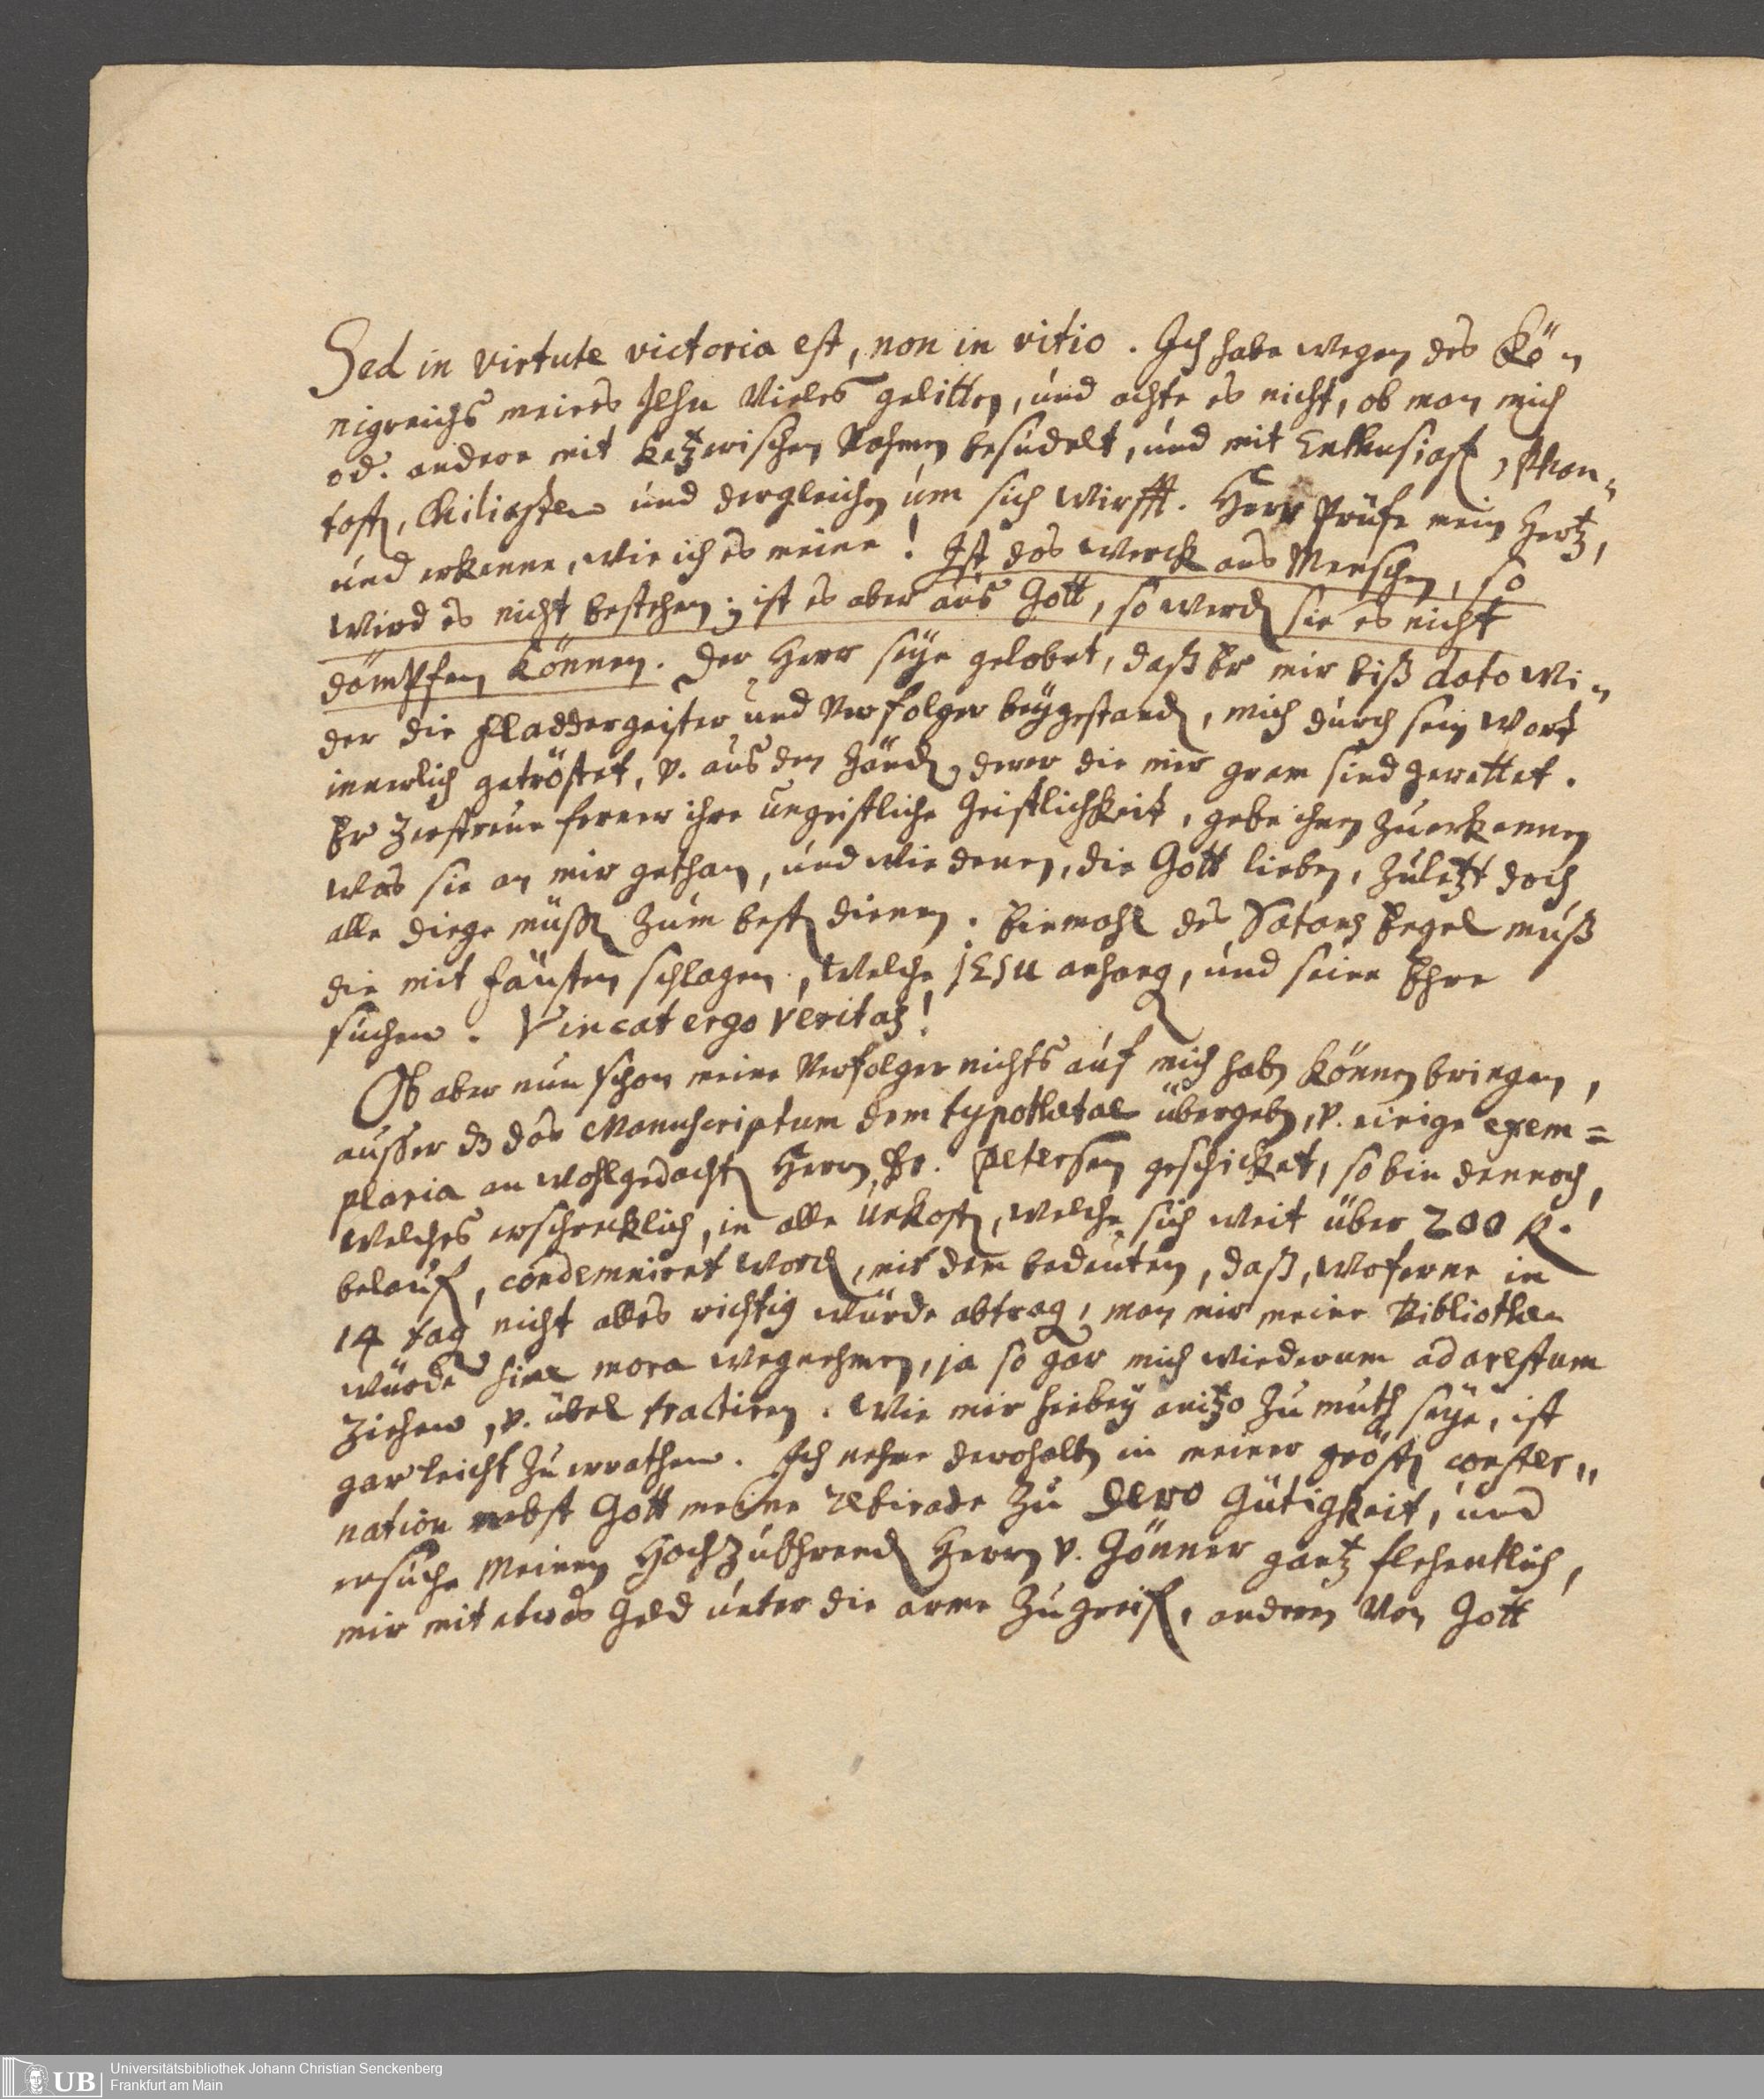 Sed in virtute victoria est, non in vitio. Ich habe wegen des Kö„
nigreichs meines Jesu vieles gelitten, und achte es nicht, ob man mich
od. andere mit ketzerischen Nahmen besudelt, und mit Enthusiast, Phan„
tast, Chiliasten und dergleichen um sich wirfft. Herr prüfe mein Hertz,
und erkenne, wie ich es meine! Ist das Werck aus Menschen, so
wird es nicht bestehen; ist es aber aus Gott, so werden sie es nicht
dämpfen können. Der Herr seye gelobet, daß Er mir biß dato wi„
der die Fladdergeister und Verfolger beygestanden, mich durch sein Wort
innerlich getröstet, v. aus den Händen derer die mir gram sind gerettet.
Er zerstreue ferner ihre ungeistliche Geistlichkeit, gebe ihnen zuerkennen
was sie an mir gethan, und wie denen, die Gott lieben, zuletzt doch
alle Dinge müssen zum besten dienen. Einmahl des Satans Engel muß
die mit Fäusten schlagen, welche JESU anhangen, und seine Ehre
suchen. Vincat ergo veritas!
Ob aber nun schon meine Verfolger nichts auf mich haben können bringen,
ausser dz das Manuscriptum dem typothetae übergeben, v. einige exem=
plaria an wohlgedachten Herrn Dr. Petersen geschicket, so bin dennoch,
welches erschrecklich, in alle Unkosten, welche sich weit über 200 R.
belauffen, condemniret worden, mit dem bedeuten, daß, woferne in
14 tagen nicht alles richtig würde abtragen, man mir meine Bibliothec
würde sine mora wegnehmen, ja so gar mich wiederum ad arestum
ziehen, v. übel tractiren. Wie mir hiebey anitzo zu muth seye, ist
gar leicht zu errathen. Ich nehme derohalben in meiner grösten conster„
nation nebst Gott meine retirade zu Dero Gütigkeit, und
ersuche Meinen HochzuEhrenden Herrn v. Gönner gantz flehentlich,
mir mit etwas Geld unter die arme zugreifen, anderen von Gott
Universitätsbibliothek Johann Christian Senckenberg
Frankfurt am Main
UB